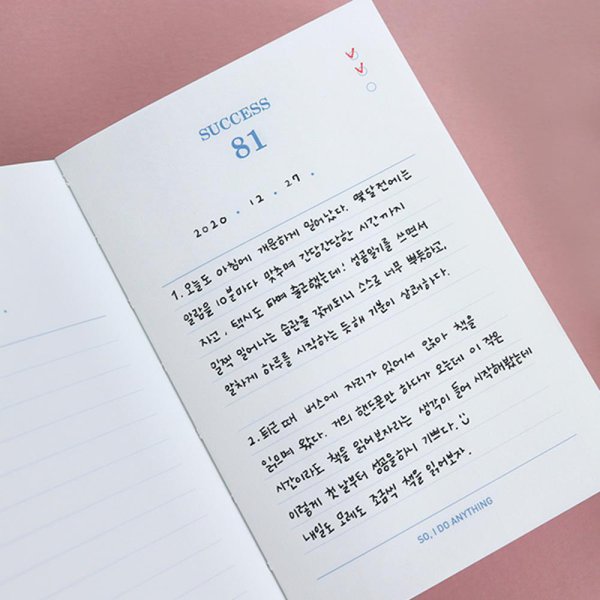 SUCCESS
81
2020 • 12 • 27 •
1. 오늘도 아침에 개운하게 일어났다. 몇달전에는
알람을 10분마다 맞추며 간당간당한 시간까지
자고, 택시도 타며 출근했는데! 성공일기를 쓰면서
일찍 일어나는 습관을 갖게되니 스스로 너무 뿌듯하고,
알차게 하루를 시작하는 듯해 기분이 상쾌하다.
2. 퇴근때 버스에 자리가 있어서 앉아 책을
읽으며 왔다. 거의 핸드폰만 하다가 오는데 이 작은
시간이라도 책을 읽어보자라는 생각이 들어 시작해봤는데
이렇게 첫날부터 성공을하니 기쁘다.
내일도 모레도 조금씩 책을 읽어보자.
SO, I DO ANYTHING